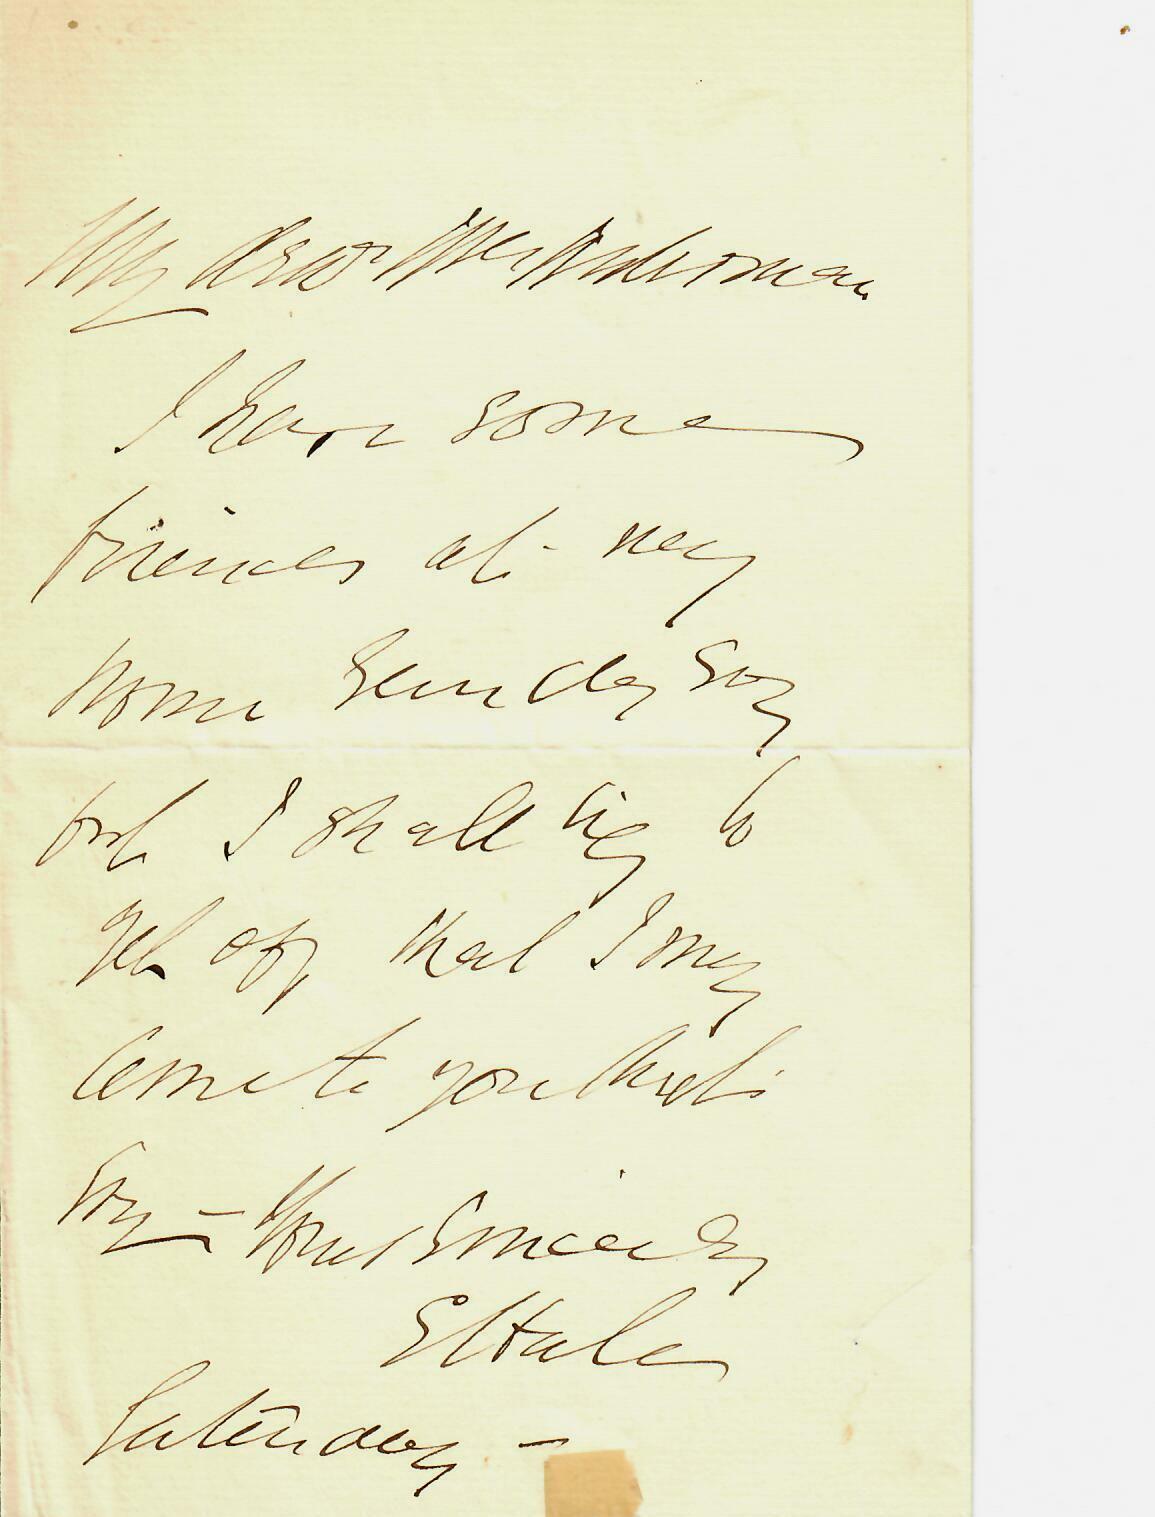 My dear Mrs
I have some
friends at my
home Sunday
but I shall try to
get off, that I may
come to you
Yours Sincerely
E Hale
Saturday –